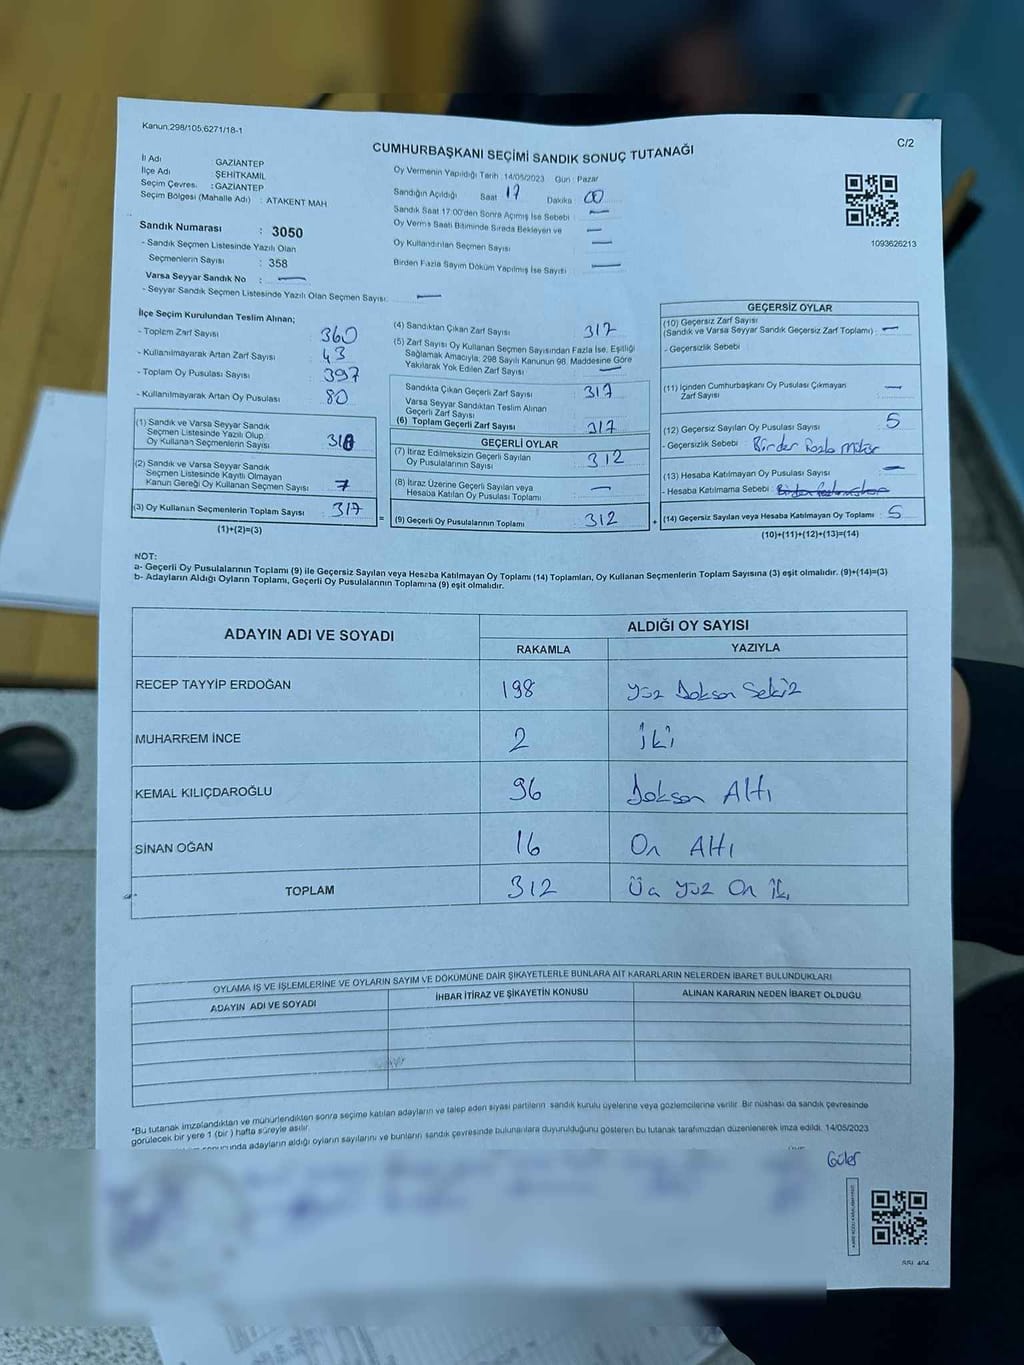 Kanun:298/105;6271/18-1
C/2
CUMHURBAŞKANI SEÇİMİ SANDIK SONUÇ TUTANAĞI
İl Adı : GAZİANTEP
İlçe Adı : ŞEHİTKAMİL
Seçim Çevres. : GAZİANTEP
Seçim Bölgesi (Mahalle Adı) : ATAKENT MAH
Oy Vermenin Yapıldığı Tarih : 14/05/2023 Gün : Pazar
Sandığın Açıldığı Saat 17 Dakika 00
Sandık Saat 17:00'den Sonra Açımış İse Sebebi —
Oy Verme Saati Bitiminde Sırada Bekleyen ve —
Oy Kullandırılan Seçmen Sayısı —
Birden Fazla Sayım Döküm Yapılmış İse Sayısı —
1093626213
Sandık Numarası : 3050
- Sandık Seçmen Listesinde Yazılı Olan
Seçmenlerin Sayısı : 358
Varsa Seyyar Sandık No : —
- Seyyar Sandık Seçmen Listesinde Yazılı Olan Seçmen Sayısı: —
İlçe Seçim Kurulundan Teslim Alınan;
- Toplam Zarf Sayısı 360
- Kullanılmayarak Artan Zarf Sayısı 43
- Toplam Oy Pusulası Sayısı 397
- Kullanılmayarak Artan Oy Pusulası 80
(1) Sandık ve Varsa Seyyar Sandık
Seçmen Listesinde Yazılı Olup
Oy Kullanan Seçmenlerin Sayısı
(2) Sandık ve Varsa Seyyar Sandık
Seçmen Listesinde Kayıtlı Olmayan
Kanun Gereği Oy Kullanan Seçmen Sayısı 7
(3) Oy Kullanan Seçmenlerin Toplam Sayısı 317
(1)+(2)=(3)
(4) Sandıktan Çıkan Zarf Sayısı 317
(5) Zarf Sayısı Oy Kullanan Seçmen Sayısından Fazla İse, Eşitliği
Sağlamak Amacıyla; 298 Sayılı Kanunun 98. Maddesine Göre
Yakılarak Yok Edilen Zarf Sayısı —
Sandıkta Çıkan Geçerli Zarf Sayısı 317
Varsa Seyyar Sandıktan Teslim Alınan
Geçerli Zarf Sayısı
(6) Toplam Geçerli Zarf Sayısı 317
GEÇERLİ OYLAR
(7) İtiraz Edilmeksizin Geçerli Sayılan
Oy Pusulalarının Sayısı 312
(8) İtiraz Üzerine Geçerli Sayılan veya
Hesaba Katılan Oy Pusulası Toplamı —
= (9) Geçerli Oy Pusulalarının Toplamı 312 +
GEÇERSİZ OYLAR
(10) Geçersiz Zarf Sayısı
(Sandık ve Varsa Seyyar Sandık Geçersiz Zarf Toplamı) : —
- Geçersizlik Sebebi :
(11) İçinden Cumhurbaşkanı Oy Pusulası Çıkmayan
Zarf Sayısı : —
(12) Geçersiz Sayılan Oy Pusulası Sayısı 5
- Geçersizlik Sebebi : Birden Fazla Mühür
(13) Hesaba Katılmayan Oy Pusulası Sayısı —
- Hesaba Katılmama Sebebi : Birden Fazla Mühür
(14) Geçersiz Sayılan veya Hesaba Katılmayan Oy Toplamı : 5
(10)+(11)+(12)+(13)=(14)
NOT:
a- Geçerli Oy Pusulalarının Toplamı (9) ile Geçersiz Sayılan veya Hesaba Katılmayan Oy Toplamı (14) Toplamları, Oy Kullanan Seçmenlerin Toplam Sayısına (3) eşit olmalıdır. (9)+(14)=(3)
b- Adayların Aldığı Oyların Toplamı, Geçerli Oy Pusulalarının Toplamına (9) eşit olmalıdır.
ADAYIN ADI VE SOYADI
ALDIĞI OY SAYISI
RAKAMLA YAZIYLA
RECEP TAYYİP ERDOĞAN 198 Yüz Doksan Sekiz
MUHARREM İNCE 2 İki
KEMAL KILIÇDAROĞLU 96 Doksan Altı
SİNAN OĞAN 16 On Altı
TOPLAM 312 Üç Yüz On İki
OYLAMA İŞ VE İŞLEMLERİNE VE OYLARIN SAYIM VE DÖKÜMÜNE DAİR ŞİKAYETLERLE BUNLARA AİT KARARLARIN NELERDEN İBARET BULUNDUKLARI
ADAYIN ADI VE SOYADI İHBAR İTİRAZ VE ŞİKAYETİN KONUSU ALINAN KARARIN NEDEN İBARET OLDUĞU
*Bu tutanak imzalandıktan ve mühürlendikten sonra seçime katılan adayların ve talep eden siyasi partilerin sandık kurulu üyelerine veya gözlemcilerine verilir. Bir nüshası da sandık çevresinde
görülecek bir yere 1 (bir ) hafta süreyle asılır.
sonucunda adayların aldığı oyların sayılarını ve bunların sandık çevresinde bulunanlara duyurulduğunu gösteren bu tutanak tarafımızdan düzenlenerek imza edildi. 14/05/2023
Güler